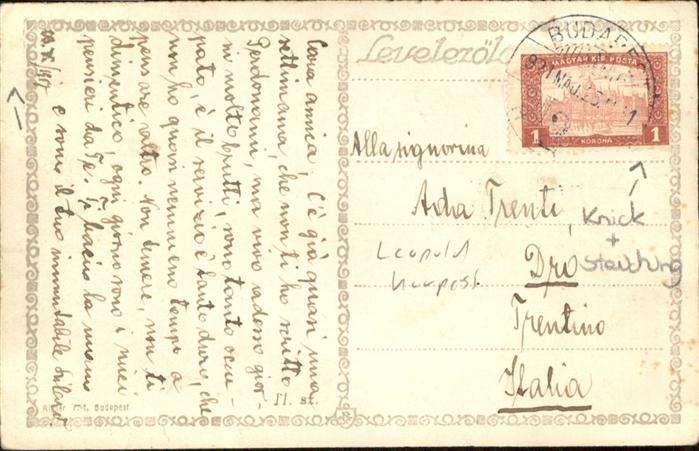 Levelezőla
BUDAPEST
921 MAJ. 25
MAGYAR KIR. POSTA
1 1
KORONA
Cara amica, C'è già quasi una
settimana, che non ti ho scritto
Perdonami, ma vivo adesso gior-
ni molto brutti, sono tanto occu-
pato, è il servizio è tanto duro, che
non ho quasi nemmeno tempo a
pensare altro. Non temere, non ti
dimentico, ogni giorno sono i miei
pensieri da Te. Ti bacio la mano
e sono il tuo immutabile
Alla signorina
Ada Trenti,
Dro
Trentino
Italia
Knick
+
Stauchung
Leopold
II. st.
Budapest